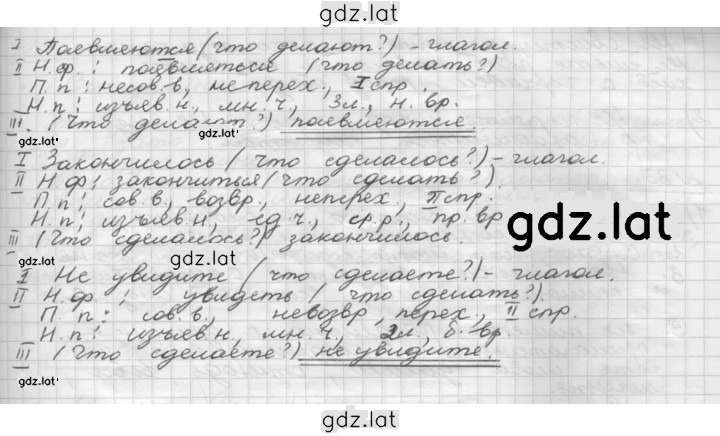 gdz.lat
I Появляются (что делают?) - глагол.
II Н.ф.: появляться (что делать?)
П.п: несов.в, неперех., I спр.
Н.п: изъяв.н., мн.ч., 3л., н.вр.
III. (Что делают?) появляются
gdz.lat
I Закончилось (что сделалось?) - глагол.
II Н.ф: закончиться (что сделать?).
П.п: сов.в, возвр., неперех, II спр.
Н.п: изъяв.н, ед.ч, ср.р., пр.вр
gdz.lat
III (Что сделалось?) закончилось.
gdz.lat
I Не увидите (что сделаете?) - глагол.
II Н.ф.: увидеть (что сделать?).
П.п: сов.в., невозвр, перех, II спр.
Н.п: изъяв.н, мн.ч, 2л., б.вр.
III (Что сделаете?) не увидите.
gdz.lat
gdz.lat